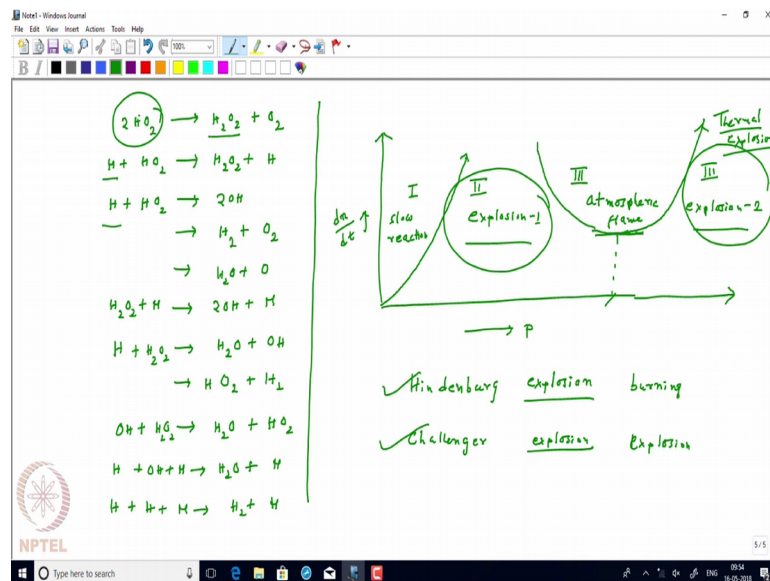 Note1 - Windows Journal
File Edit View Insert Actions Tools Help
100%
B I
2HO2 → H2O2 + O2
H + HO2 → H2O2 + H
H + HO2 → 2OH
→ H2 + O2
→ H2O + O
H2O2 + M → 2OH + M
H + H2O2 → H2O + OH
→ HO2 + H2
OH + H2O2 → H2O + HO2
H + OH + M → H2O + M
H + H + M → H2 + M
dn/dt ↑
I
slow
reaction
II
explosion-1
III
atmospheric
flame
Thermal
explosion
III
explosion-2
→ P
✓ Hindenburg explosion burning
✓ Challenger explosion Explosion
NPTEL
5/5
Type here to search
ENG
09:54
16-05-2018